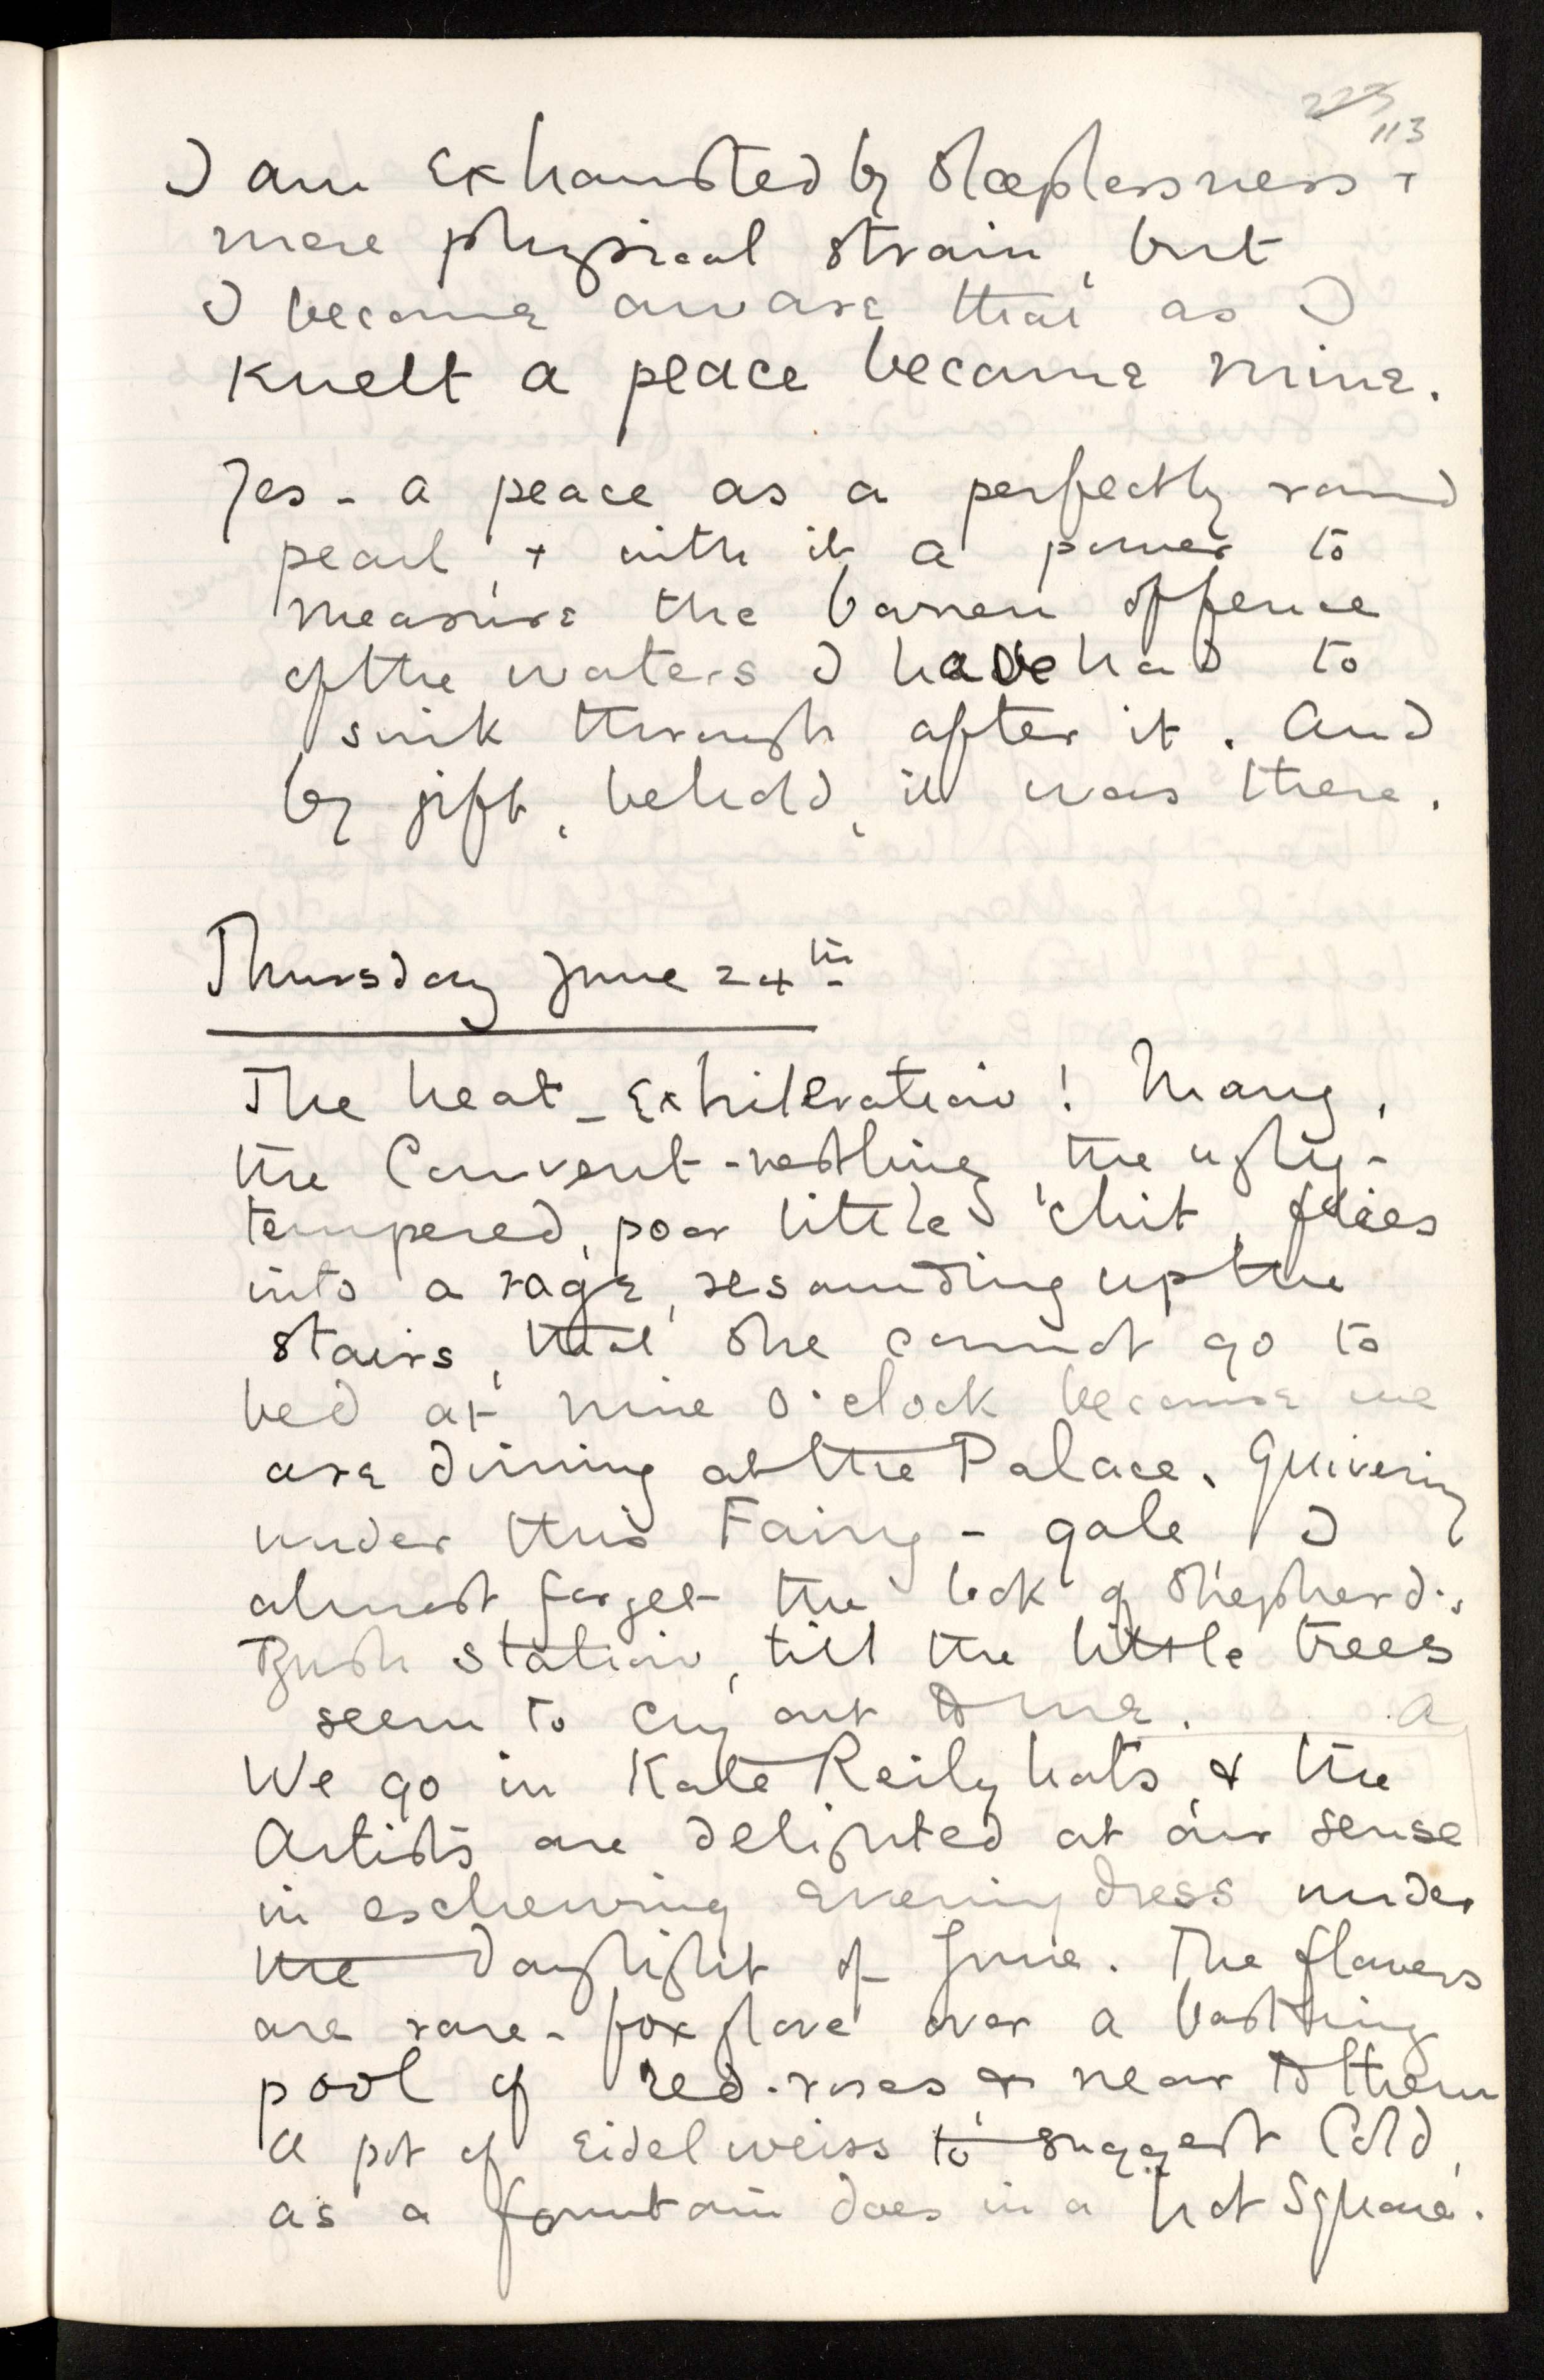 223
113
I am exhausted by sleeplessness +
mere physical strain, but
I became aware that as I
knelt a peace became mine.
Yes - a peace as a perfectly round
pearl, + with it a power to
measure the barren offence
of the waters I have had to
sink through after it. And
by gift, behold, it was there.
Thursday June 24th
The heat - exhileration! Mary,
the Convent-nestling, the ugly-
tempered, poor little chit, flies
into a rage, resounding up the
stairs, that she cannot go to
bed at nine o'clock because we
are dining at the Palace. Quivering
under this Fairy-gale I
almost forget the look of Shepherd's
Bush station, till the little trees
seem to cry out to me.
We go in Kate Reily hats & the
Artists are delighted at our sense
in eschewing evening dress under
the daylight of June. The flowers
are rare - foxglove over a
pool of red-roses & near to them
a pot of Eidelweiss to suggest Cold,
as a fountain does in a hot Square.